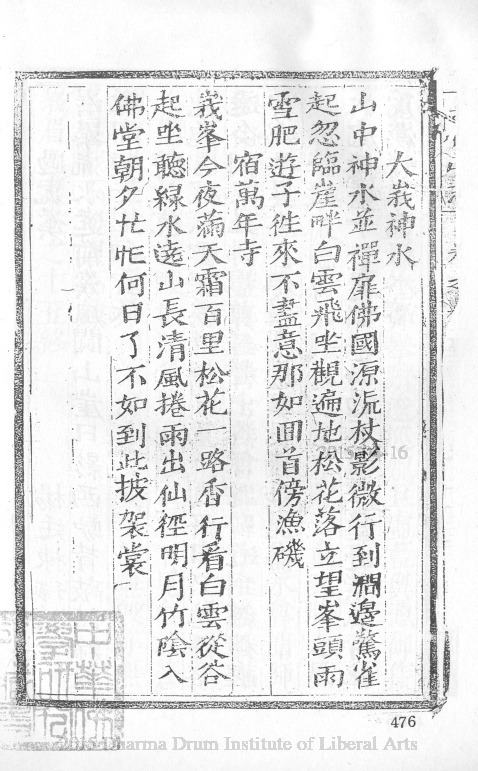 大峩神水
山中神水並禪扉佛國源流杖影微行到澗邊驚雀
起忽臨崖畔白雲飛坐觀遍地松花落立望峯頭雨
雪肥遊子徃來不盡意那如囬首傍漁磯
宿萬年寺
峩峯今夜滿天霜百里松花一路香行看白雲從谷
起坐聽綠水遶山長清風捲雨出仙徑明月竹陰入
佛堂朝夕忙忙何日了不如到此披袈裟
476
Dharma Drum Institute of Liberal Arts